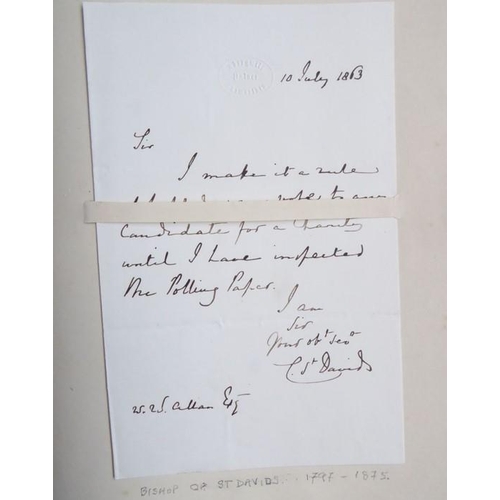 10 July 1863
Sir
I make it a rule
to any
Candidate for a Charity
until I have inspected
the Polling Paper.
I am
Sir
Your obt Servt
C. St Davids
Allan Esq
BISHOP OF ST DAVIDS 1797 - 1875.